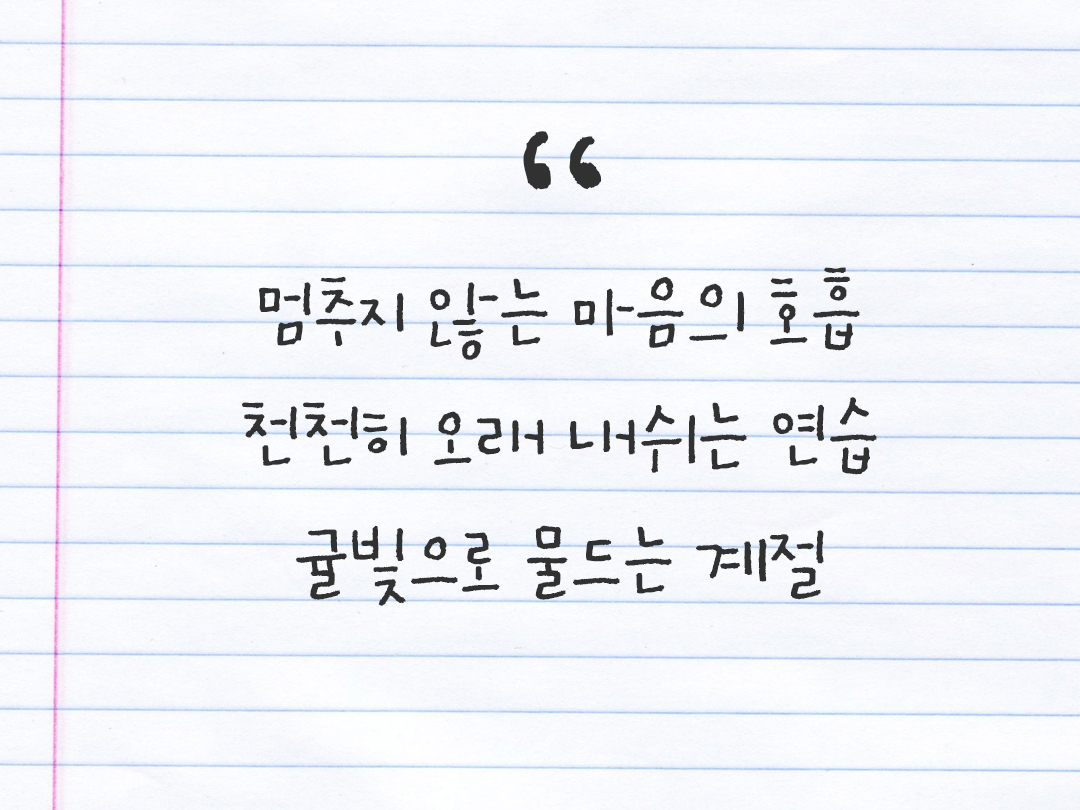 “
멈추지 않는 마음의 호흡
천천히 오래 내쉬는 연습
귤빛으로 물드는 계절